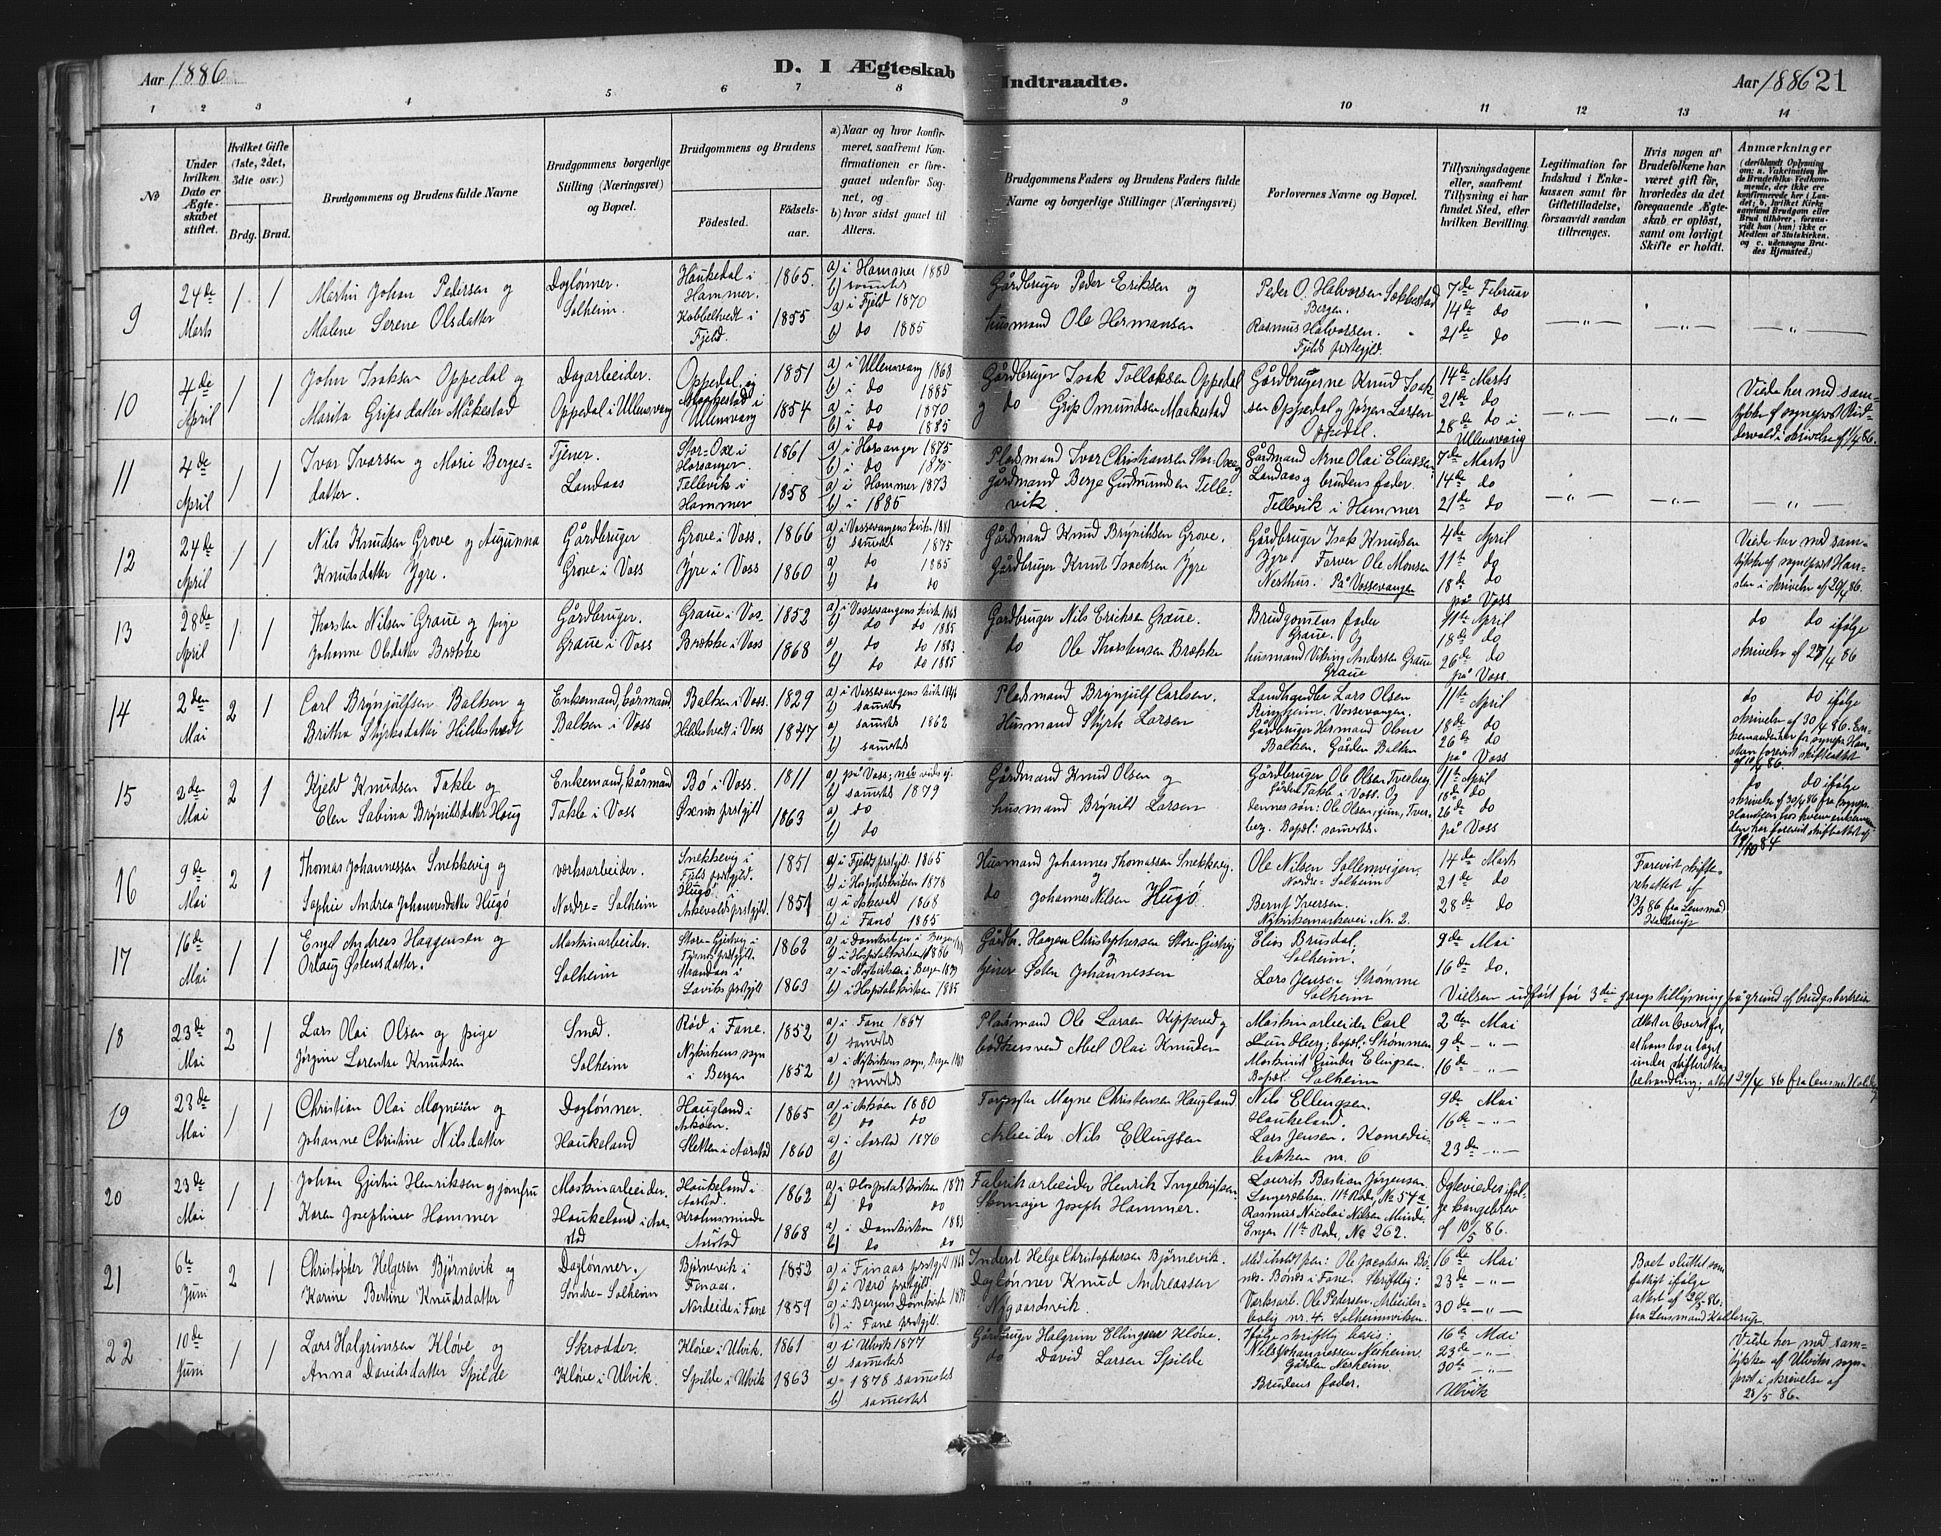 Aar 1886
D. I Ægteskab Indtraadte.
Aar 1886 21
1 2 3 4 5 6 7 8 9 10 11 12 13 14
No
Under hvilken Dato er Ægteskabet stiftet.
Hvilket Gifte (1ste, 2det, 3die osv.)
Brdg. Brud.
Brudgommens og Brudens fulde Navne
Brudgommens borgerlige Stilling (Næringsvei) og Bopæl.
Brudgommens og Brudens
Födested. Födselsaar.
a) Naar og hvor konfirmeret, saafremt Konfirmationen er foregaaet udenfor Sognet, og
b) hvor sidst gaaet til Alters.
Brudgommens Faders og Brudens Faders fulde Navne og borgerlige Stillinger (Næringsvei)
Forlovernes Navne og Bopæl.
Tillysningsdagene eller, saafremt Tillysning ei har fundet Sted, efter hvilken Bevilling.
Legitimation for Indskud i Enkekassen samt for Giftetilladelse, forsaavidt saadan tiltrænges.
Hvis nogen af Brudefolkene har været gift før, hvorledes da det foregaaende Ægteskab er oplöst, samt om lovligt Skifte er holdt.
Anmærkninger
(deriblandt Oplysning om: a. Vakcination for de Brudefolks Vedkommende, der ikke ere konfirmerede her i Landet; b. hvilket Kirkesamfund Brudgom eller Brud tilhörer, forsaavidt han (hun) ikke er Medlem af Statskirken, og c. udensogns Brudes Hjemsted.)
9
24de Marts
1 1
Martin Johan Pedersen og
Malene Serene Olsdatter
Daglønner.
Solheim.
Haukedal i Hammer.
Kobbeltvedt i Fjeld.
1865.
1855
a) i Hammer 1880
b) samsteds
a) i Fjeld 1870
b) do 1885
Gårdbruger Peder Eriksen og
husmand Ole Hermansen
Peder O. Halvorsen
Bergen.
Rasmus Halvorsen.
Fjelds præstegjeld.
7de Februar
14de do
21de do
10
4de April
1 1
John Isaksen Oppedal og
Marita Gripsdatter Måkestad
Dagarbeider.
Oppedal i Ullensvang
Oppedal og
Maakestad i
Ullensvang
1851
1854
a) i Ullensvang 1868
b) i do 1885
a) i do 1870
b) i do 1885
Gårdbruger Isak Tollaksen Oppedal
og do Grip Omundsen Maakestad
Gårdbrugerne Knud Isaksen Oppedal og Jørgen Larsen
Oppedal.
14de Marts
21de do
28de do i
Ullensvang
Viede her med samtykke af sogneprest
i skrivelse af 1/4 86.
11
4de April
1 1
Ivar Ivarsen og Marie Bergesdatter.
Tjener.
Landaas
Stor-Oxe i
Hosanger
Tellevik i
Hammer
1861
1858
a) i Hosanger 1875
b) i do 1875
a) i Hammer 1873
b) i 1885
Pladsmand Ivar Christiansen Stor-Oxe og
Gårdmand Berge Gudmundsen Tellevik.
Gårdmand Arne Olai Eliassen
Landaas og brudens fader.
Tellevik i Hammer
7de Marts
14de do
21de do
12
24de April
1 1
Nils Knudsen Grove og Augunna
Knudsdatter Ygre.
Gårdbruger
Grove i Voss
Grove i Voss.
Ygre i Voss
1866
1860
a) i Vossevangens kirke 1881
b) samsteds 1875
a) do 1885
b) do do
Gårdmand Knud Brynildsen Grove.
Gårdbruger Knut Isacksen Ygre
Gårdbruger Isak Knudsen
Ygre. Farver Ole Monsen
Nesthus. På Vossevangen
4de April
11te do
18de do
på Voss
Viede her med samtykke af sogneprest Hansen i skrivelse af 20/4 86.
13
28de April
1 1
Thorsten Nilsen Graue og pige
Johanne Olsdatter Brekke
Gårdbruger.
Graue i Voss
Graue i Vos
Brække i Voss
1852
1868
a) i Vossevangens kirke 1868
b) do do 1885
a) do do 1883
b) do do 1885
Gårdbruger Nils Ericksen Graue.
do Ole Thorstensen Brække
Brudgomens fader
Graue. Og
husmand Viking Andersen Graue
Graue
11te April
18de do
26de do
på Voss
do do ifølge
skrivelse af 27/4 86
14
2den Mai
2 1
Carl Brynjulfsen Balken og
Britha Styrksdatter Hildestvedt
Enkemand, kårmand
Balken i Voss
Balken i Voss.
Hildestvedt i Voss
1829
1847
a) i Vossevangens kirke
b) samsteds
a) samsteds 1862
b) samsteds
Pladsmand Brynjulf Carlsen.
Husmand Styrk Larsen
Landhandler Lars Olsen
Ringheim. Vossevangen.
Gårdbruger Hermand Olsen
Balken. Gården Balken
11te April
18de do
26de do
på Voss
do do ifølge
skrivelse af 30/4 86.
15
2de Mai
2 1
Kjeld Knudsen Takle og
Elen Sabina Brynildsdatter Haug
Enkemand, kårmand
Takle i Voss
Bø i Voss.
Øxnes prstgjld
1811
1863
a) på Voss;
b) samsteds 1879
a) do
b) do
Gårdmand Knud Olsen og
husmand Brynild Larsen
Gårdbruger Ole Olsen Tverberg
Gården Takle i Voss. Og
dennes søn: Ole Olsen, jun, Tverberg. Bopæl: samsteds.
11te April
18de do
26de do
på Voss
do do ifølge
skrivelse af 30/4 86
16
9de Mai
2 1
Thomas Johannessen Snekkevig og
Sophie Andrea Johannesdatter Hugø
værksarbeider.
Nordre-Solheim
Snekkevig i
Fjels prstgjld.
Hugø
Askevolds prstgjld.
1851
1851
a) i Fjelds prstgjld. 1865
b) i Hospitalskirken 1878
a) i Askevold 1868
b) i Fanø 1865
Husmand Johannes Thomassen Snekkevig.
og
do Johannes Nilsen Hugø
Ole Nilsen Solheimsvigen.
Nordre-Solheim
Bernt Iversen.
Nykirkemarkevei. Nr. 2.
14de Marts
21de do
28de do
Forevist skifteretsattest af
13/3 86 fra Lensmand
17
16de Mai
1 1
Engel Andreas Haagensen og
Orlaug Østensdatter.
Maskinarbeider.
Solheim
Store-Gjetvig i
prstgjld.
Strandan i
Laviks prstgjld
1862
1863
a) i Domkirken i Bergen
b) i Hospitalskirken 1886
a) i Nykirken i Bergen 1879
b) i Hospitalskirken 1885
Gårdbr. Haagen Christophersen Store-Gjetvig
og
tjener Østen Johannessen
Elias Brusdal,
Solheim.
Lars Jensen Strømme
Solheim
9de Mai
16de do.
Vielsen udført før 3die gangs tillysning på grund af
18
23de Mai
2 1
Lars Olai Olsen og pige
Jørgine Lorentse Knudsen
Smed.
Solheim
Rød i Fane.
Nykirkens sogn
i Bergen
1852
1852
a) i Fane 1867
b) samsteds
a) i Nykirkens sogn, Bergen
b) samsteds
Pladsmand Ole Larsen og
bødkersvend Abel Olai Knudsen
Maskinarbeider Carl
Lundberg; bopæl: Strømmen
Maskinist Gunder Elingsen
Bopæl. Solheim
2den Mai
9de - " -
16de - " -
under skifterettens behandling; attest 29/4 86 fra Lensmand
19
23de Mai
1 1
Christian Olai Magnesen og
Johanne Christine Nilsdatter
Daglønner.
Haukeland
Haugland i
Askøen.
Sletten i Aarstad
1865
1860
a) i Askøen 1880
b) do do
a) i Aarstad 1876
b)
Magne Christensen Haugland.
Arbeider Nils Ellingsen
Nils Ellengsen.
Haukeland.
Lars Jensen. Komediebakken nr. 6
9de Mai
16de - " -
23de - " -
20
23de Mai
1 1
Johan Gjertin Henriksen og jomfru
Karen Josephine Hammer
Maskinarbeider.
Haukeland i Aarstad
Haukeland i
Aarstad.
Krohnsminde
Aarstad
1862
1868
a) i Hospitalskirken 1877
b) do do
a) i Domkirken 1883
b) do do
Fabrikarbeider Henrik Ingebrigtsen.
Skomager Joseph Hammer.
Laurits Bastian Jørgensen.
11te Rode, No 57a
Rasmus Nicolai Nilsen Minde.
Engen 11te Rode, No 262.
Ægtevies ifølge kongebrev
af 10/5 86.
21
6te Juni
2 1
Christopher Helgesen Bjørnevik og
Karine Bertine Knudsdatter
Daglønner.
Søndre-Solheim
Bjørnevik i
Finaas.
Nordeide i Fane
1852
1859
a) i Finaas prstgjld
b) i Værø prstgjld.
a) i Bergens Domkirke
b) i Fane prstgjld.
Inderst Helge Christophersen Bjørnevik.
Daglønner Knud Andreassen
Nygaardsvik.
Ole Jacobsen Bønes. Bønes i Fane. Skriftlig:
Værksarb. Ole Pedersen. Arbeiderbolig nr. 4. Solheimsviken.
16de Mai
23de - " -
30de - " -
Boet sluttet som
fattigt ifølge
attest af 86.
fra Lensmand
22
10de Juni
1 1
Lars Halgrimsen Kløve og
Anna Davidsdatter Spilde
Skrædder.
Kløve i Ulvik.
Kløve i Ulvik.
Spilde i Ulvik
1861
1863
a) i Ulvik 1877
b) samsteds
a) 1878 samsteds
b) samsteds
Gårdbruger Halgrim Ellingsen Kløve.
do David Larsen Spilde
Ifølge skriftlig bevis:
Nils Johannessen Nesheim.
Gården Nesheim.
Brudens fader.
16de Mai
23de - " -
30te - " -
i
Ulvik
Viede her med samtykke af Ulviks sogneprst i skrivelse af
28/5 86.